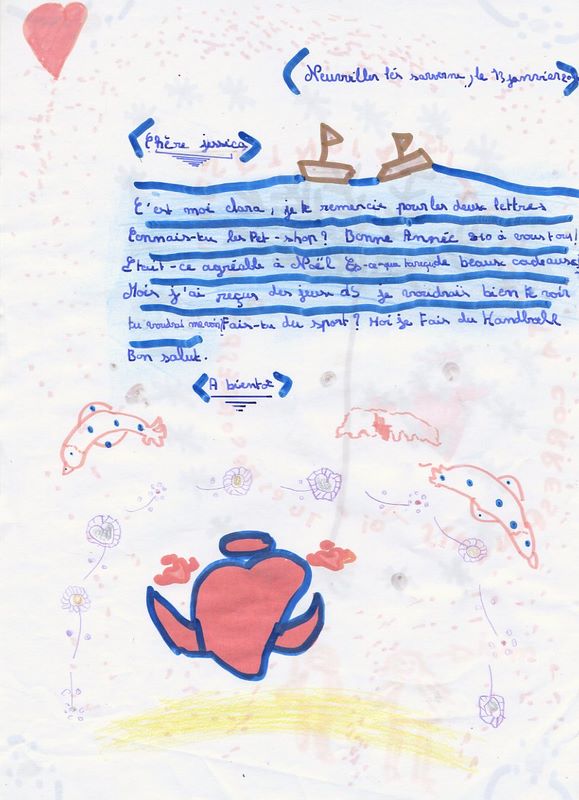 Neuviller lès saverne, le 13 janvier 20
Chère jessica
C'est moi clara, je te remercie pour les deux lettres
Connais-tu les Pet-shop? Bonne Année 2010 à vous tous!
Etait-ce agréable à Noël Es-ce-que tu reçu de beaux cadeaux,
Mois j'ai reçus des jeux dS je voudrais bien te voir
tu voudrai me voir? Fais-tu du sport? Moi je Fais du Handball
Bon salut.
A bientot
CORRES